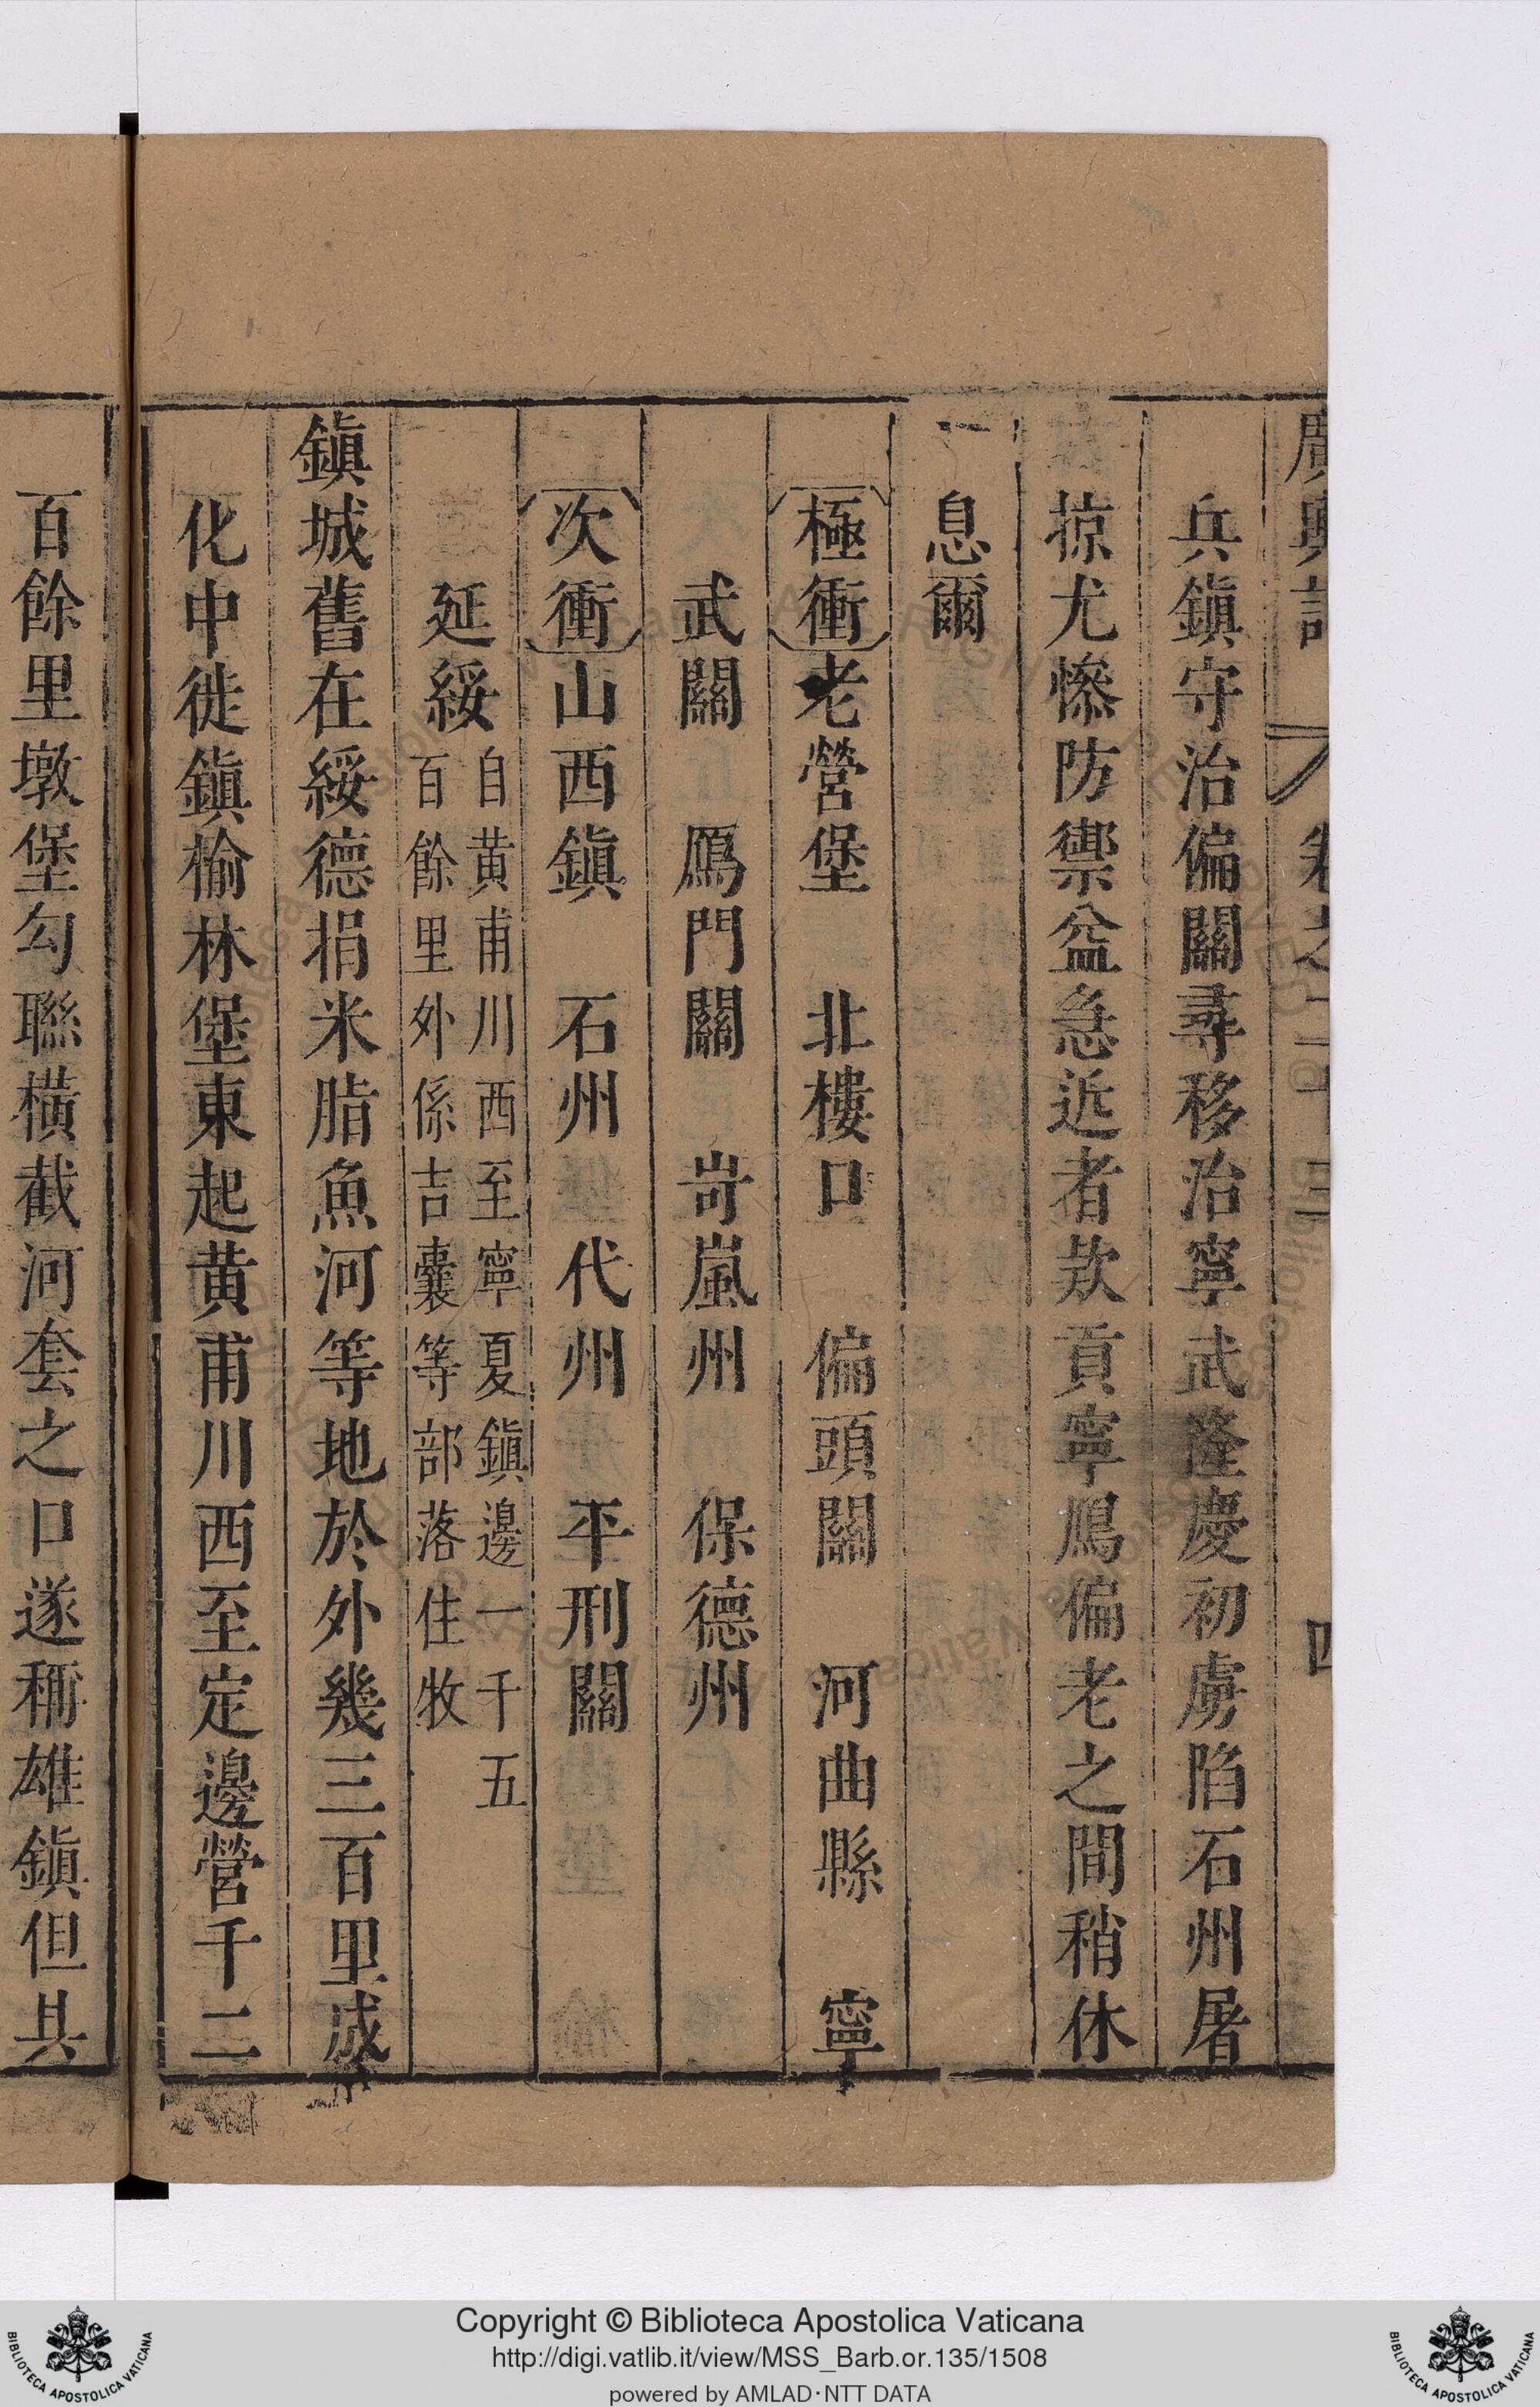 廣輿記 卷之二十三 四
兵鎮守治偏關尋移治寧武隆慶初虜陷石州屠
掠尤慘防禦益急近者欵貢寧鴈偏老之間稍休
息爾
極衝老營堡 北樓口 偏頭關 河曲縣 寧
武關 鴈門關 岢嵐州 保德州
次衝山西鎮 石州 代州 平刑關
延綏自黄甫川西至寧夏鎮邊一千五
百餘里外係吉囊等部落住牧
鎮城舊在綏德捐米脂魚河等地於外幾三百里成
化中徙鎮榆林堡東起黄甫川西至定邊營千二
百餘里墩堡勾聯橫截河套之口遂稱雄鎮但其
Copyright © Biblioteca Apostolica Vaticana
http://digi.vatlib.it/view/MSS_Barb.or.135/1508
powered by AMLAD·NTT DATA
BIBLIOTECA APOSTOLICA VATICANA
BIBLIOTECA APOSTOLICA VATICANA